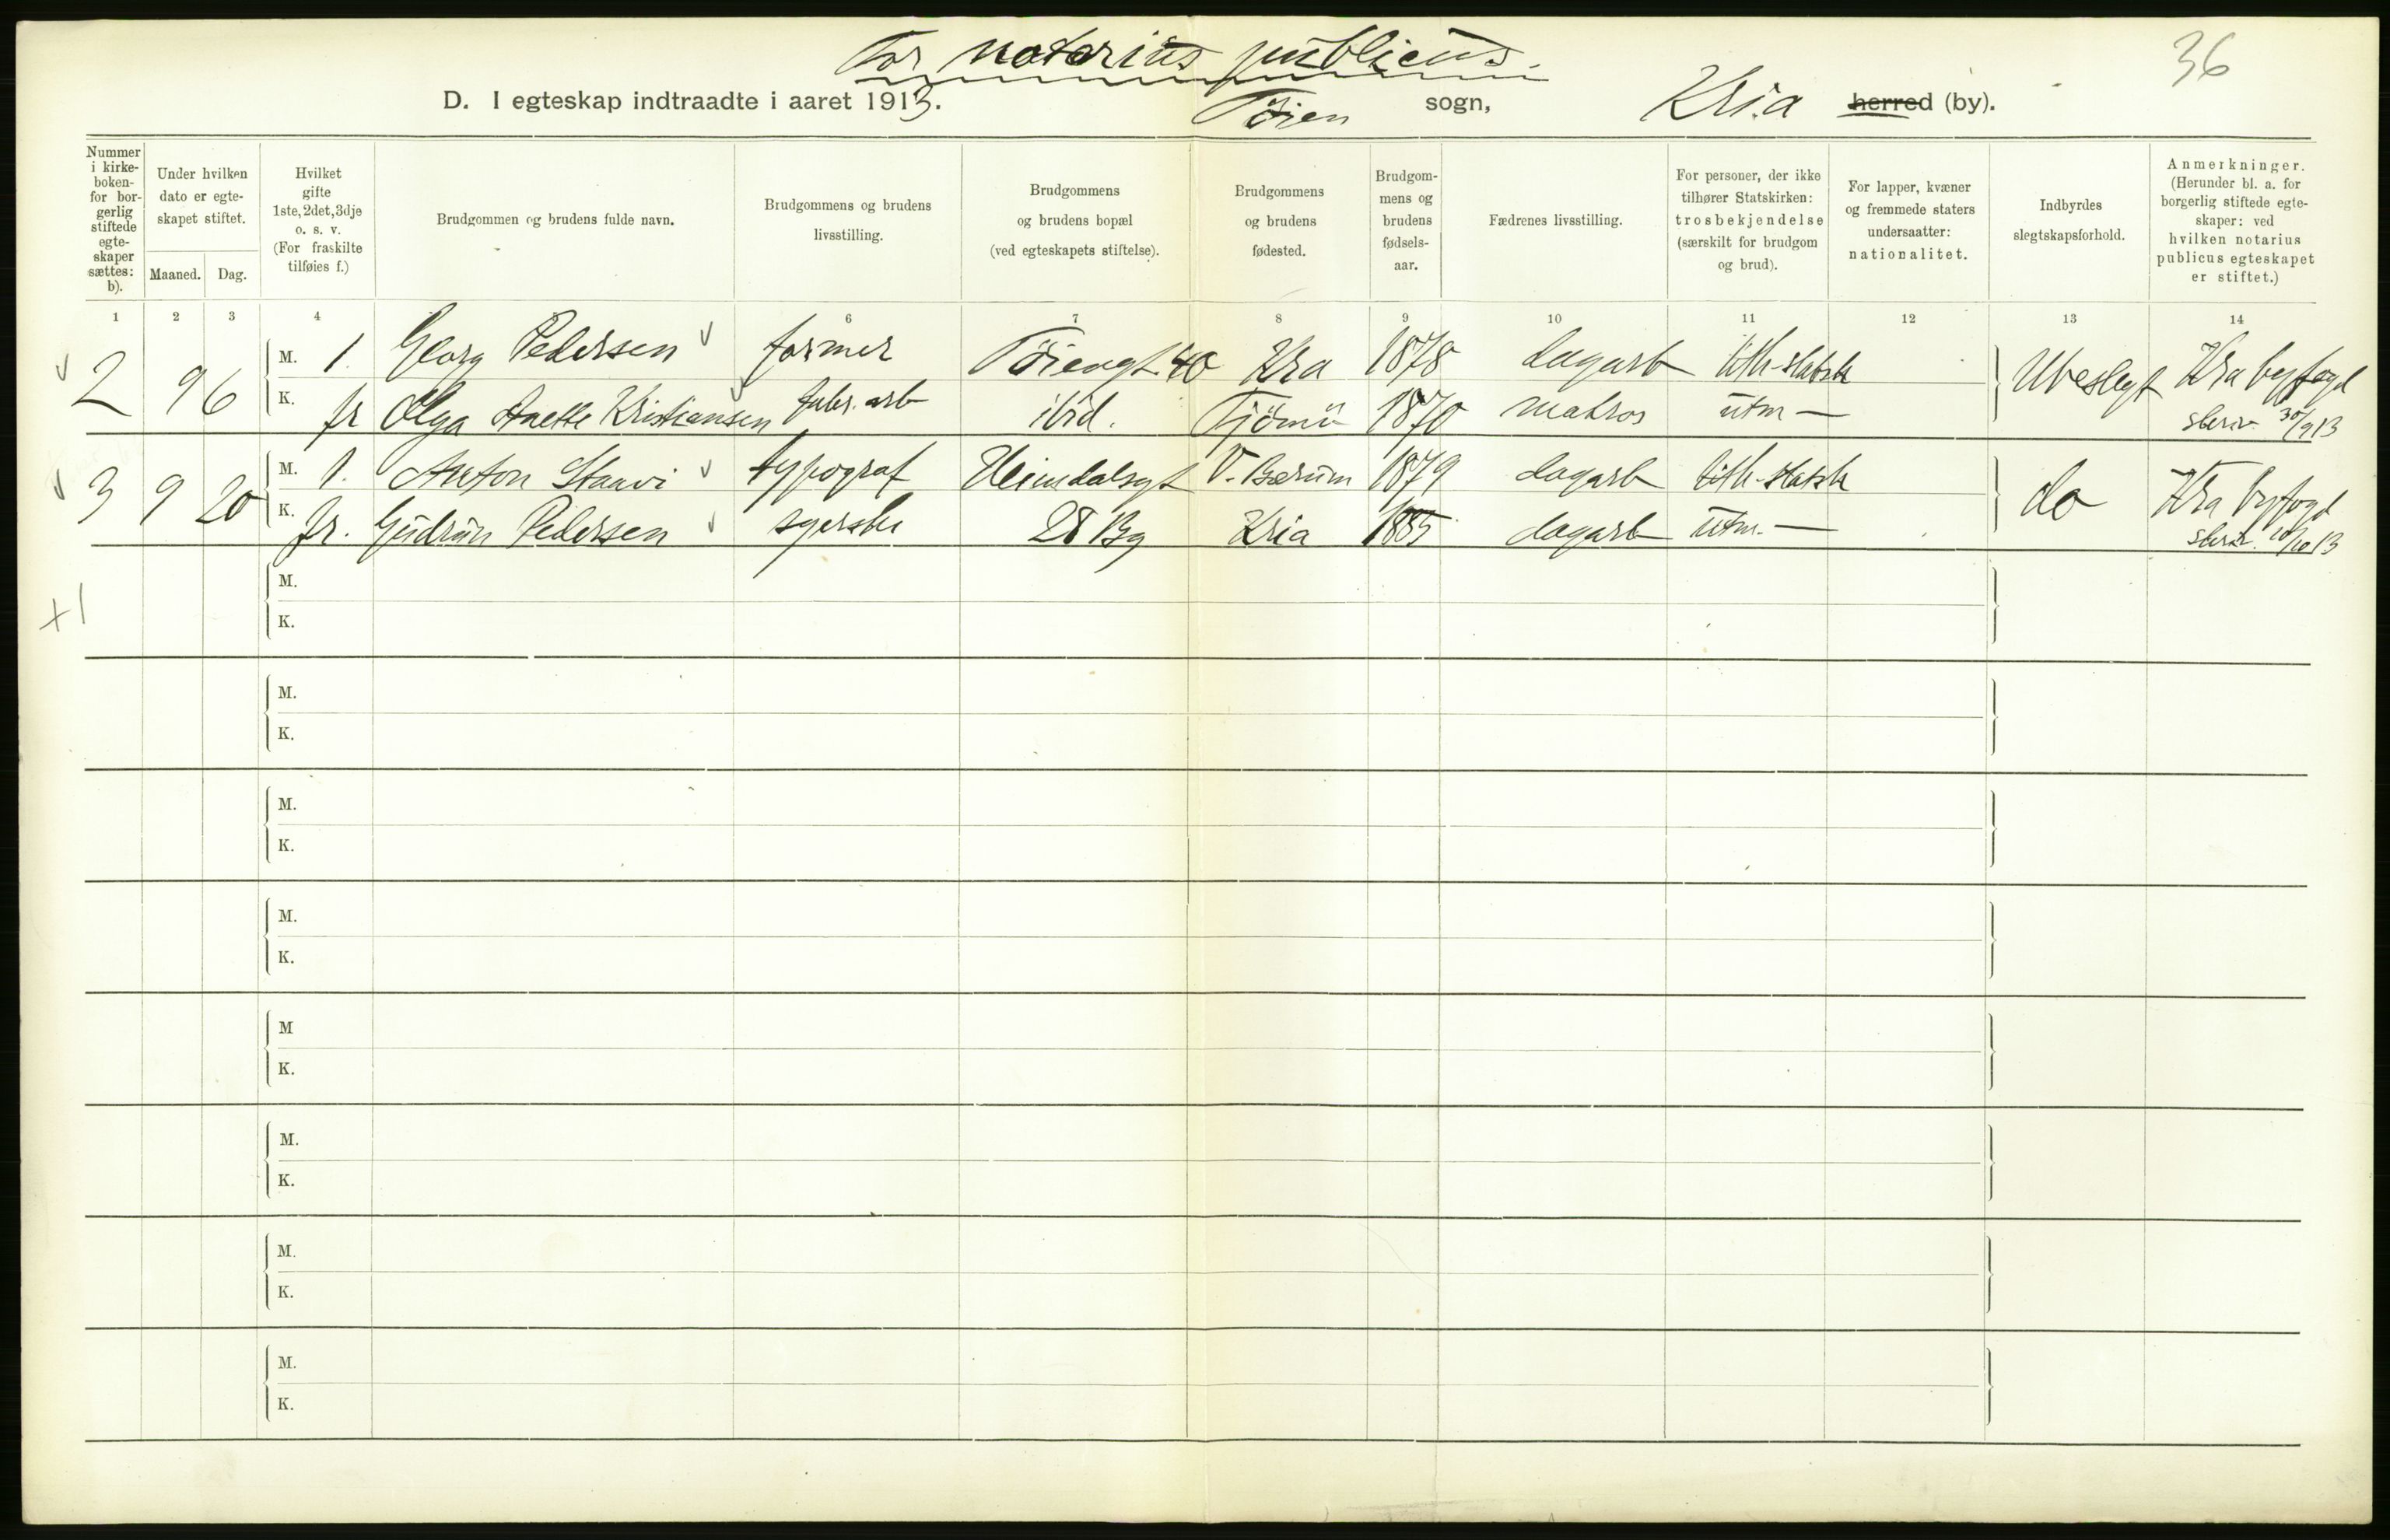 For notarius publicus.
36
D. I egteskap indtraadte i aaret 1913. Tøien sogn, Kria herred (by).
Nummer i kirkeboken- for borgerlig stiftede egteskaper sættes: b).
Under hvilken dato er egteskapet stiftet.
Maaned. Dag.
Hvilket gifte 1ste, 2det, 3dje o. s. v. (For fraskilte tilføies f.)
Brudgommen og brudens fulde navn.
Brudgommens og brudens livsstilling.
Brudgommens og brudens bopæl (ved egteskapets stiftelse).
Brudgommens og brudens fødested.
Brudgommens og brudens fødselsaar.
Fædrenes livsstilling.
For personer, der ikke tilhører Statskirken: trosbekjendelse (særskilt for brudgom og brud).
For lapper, kvæner og fremmede staters undersaatter: nationalitet.
Indbyrdes slegtskapsforhold.
Anmerkninger. (Herunder bl. a. for borgerlig stiftede egteskaper: ved hvilken notarius publicus egteskapet er stiftet.)
1 2 3 4 5 6 7 8 9 10 11 12 13 14
2 9 6 M. 1. Georg Pedersen former Tøiengt. 40 Kra 1878 dagarb luth-statsk Ubeslegt Kra byfogd
K. fr Olga Anette Kristiansen fabr. arb ibid. Tjömö 1870 matros utm — skriv 30/9 13
3 9 20 M. 1. Anton Staavi typograf Heimdalsgt V. Bærum 1879 dagarb luth-statsk do Kra byfogd
K. fr. Gudrun Pedersen syerske 28 Bg Kria 1885 dagarb utm. — skriv. 10/10 13
+1
M.
K.
M.
K.
M.
K.
M.
K.
M
K.
M.
K.
M.
K.
M.
K.